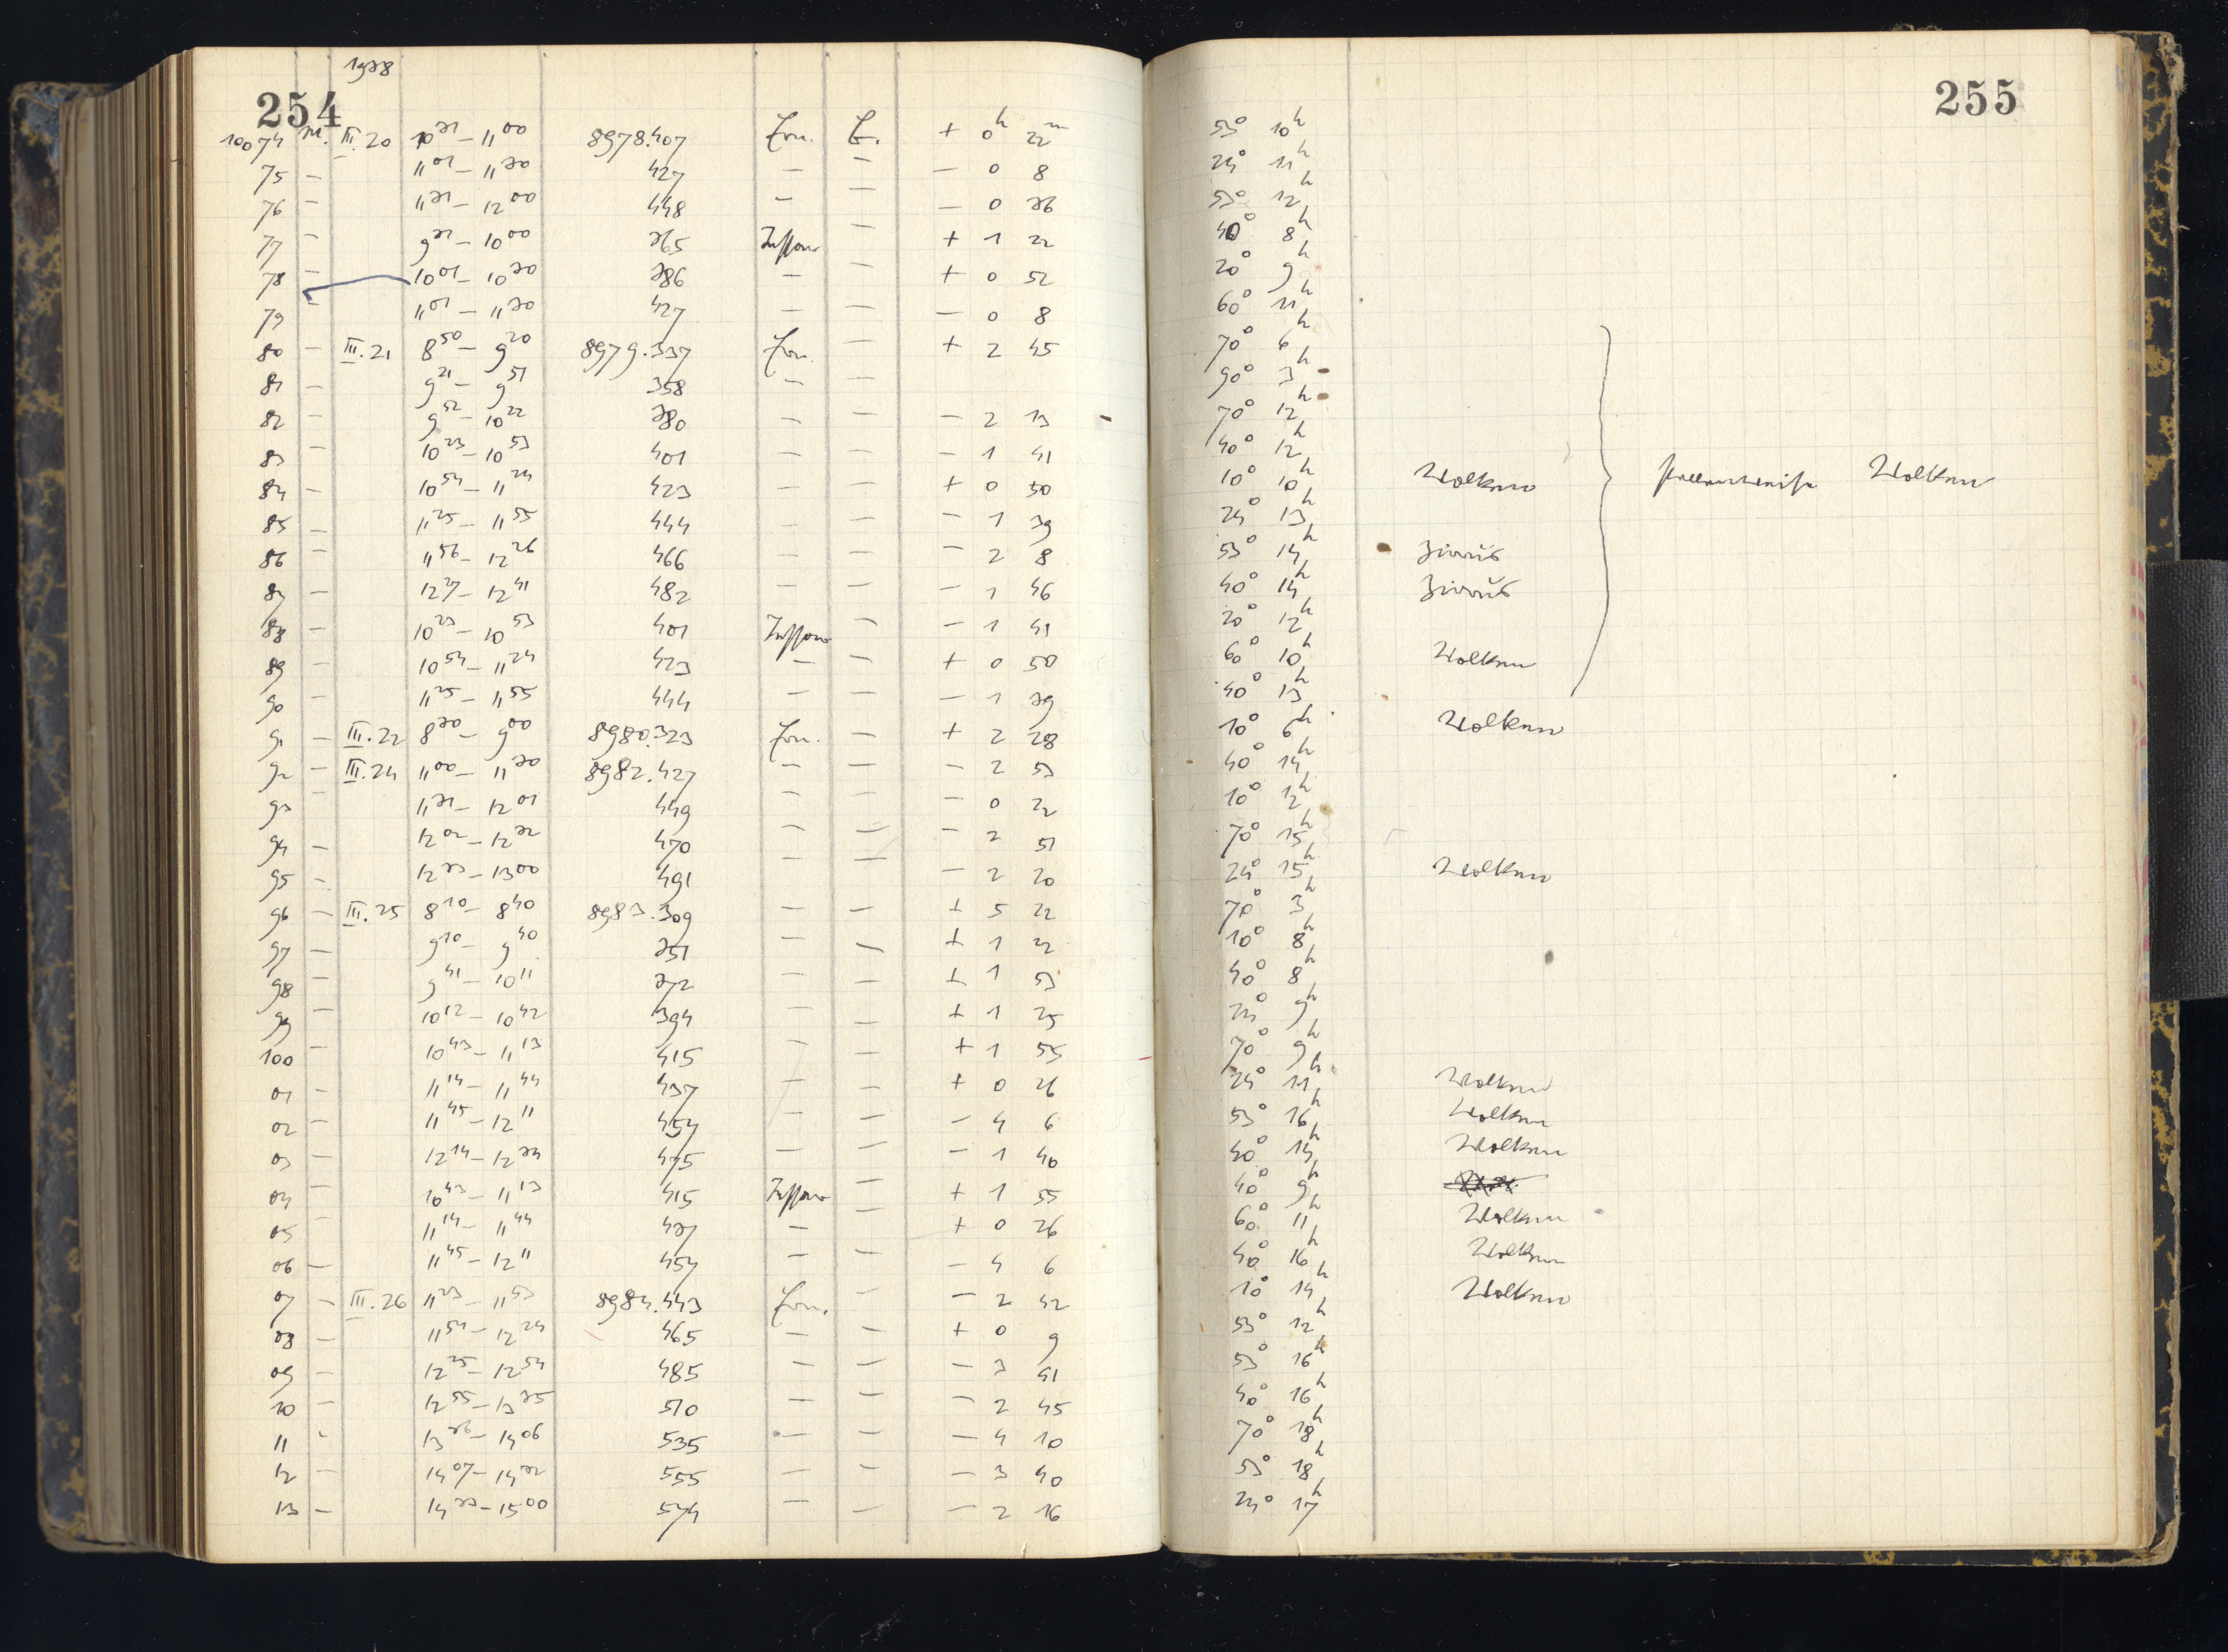 254
1938
10074 m. III.20 10³¹ – 11⁰⁰ 8978.407 Ern. + 0ʰ 22ᵐ
75 – 11⁰¹ – 11³⁰ 427 – – – 0 8
76 – 11³¹ – 12⁰⁰ 448 – – – 0 36
77 – 9³¹ – 10⁰⁰ 365 Tessar – + 1 22
78 – 10⁰¹ – 10³⁰ 386 – – + 0 52
79 – 11⁰¹ – 11³⁰ 427 – – – 0 8
80 – III.21 8⁵⁰ – 9²⁰ 8979.337 Ern. – + 2 45
81 – 9²¹ – 9⁵¹ 358 – –
82 – 9⁵² – 10²² 380 – – – 2 13
83 – 10²³ – 10⁵³ 401 – – – 1 41
84 – 10⁵⁴ – 11²⁴ 423 – – + 0 50
85 – 11²⁵ – 11⁵⁵ 444 – – – 1 39
86 – 11⁵⁶ – 12²⁶ 466 – – – 2 8
87 – 12²⁷ – 12⁴¹ 482 – – – 1 46
88 – 10²³ – 10⁵³ 401 Tessar – – 1 41
89 – 10⁵⁴ – 11²⁴ 423 – – + 0 50
90 – 11²⁵ – 11⁵⁵ 444 – – – 1 39
91 – III.22 8³⁰ – 9⁰⁰ 8980.323 Ern. – + 2 28
92 – III.24 11⁰⁰ – 11³⁰ 8982.427 – – – 2 53
93 – 11³¹ – 12⁰¹ 449 – – – 0 22
94 – 12⁰² – 12³² 470 – – – 2 51
95 – 12³³ – 13⁰⁰ 491 – – – 2 20
96 – III.25 8¹⁰ – 8⁴⁰ 8983.309 – – + 5 22
97 – 9¹⁰ – 9⁴⁰ 351 – – + 1 22
98 – 9⁴¹ – 10¹¹ 372 – – + 1 53
99 – 10¹² – 10⁴² 394 – – + 1 25
100 – 10⁴³ – 11¹³ 415 – – + 1 55
01 – 11¹⁴ – 11⁴⁴ 437 – – + 0 26
02 – 11⁴⁵ – 12¹¹ 454 – – – 4 6
03 – 12¹⁴ – 12³⁴ 475 – – – 1 40
04 – 10⁴³ – 11¹³ 415 Tessar – + 1 55
05 – 11¹⁴ – 11⁴⁴ 437 – – + 0 26
06 – 11⁴⁵ – 12¹¹ 454 – – – 4 6
07 – III.26 11²³ – 11⁵³ 8984.443 Ern. – – 2 42
08 – 11⁵⁴ – 12²⁴ 465 – – + 0 9
09 – 12²⁵ – 12⁵⁴ 485 – – – 3 41
10 – 12⁵⁵ – 13³⁵ 510 – – – 2 45
11 – 13³⁶ – 14⁰⁶ 535 – – – 4 10
12 – 14⁰⁷ – 14³² 555 – – – 3 40
13 – 14³³ – 15⁰⁰ 574 – – – 2 16
255
53° 10ʰ
24° 11ʰ
53° 12ʰ
40° 8ʰ
20° 9ʰ
60° 11ʰ
70° 6ʰ
90° 3ʰ
70° 12ʰ
40° 12ʰ
10° 10ʰ Wolken stellenweise Wolken
24° 13ʰ
53° 14ʰ Zirrus
40° 14ʰ Zirrus
20° 12ʰ
60° 10ʰ Wolken
40° 13ʰ
10° 6ʰ Wolken
40° 14ʰ
10° 12ʰ
70° 15ʰ
24° 15ʰ Wolken
70° 3ʰ
10° 8ʰ
40° 8ʰ
24° 9ʰ
70° 9ʰ
24° 11ʰ Wolken
53° 16ʰ Wolken
40° 14ʰ Wolken
40° 9ʰ
60° 11ʰ Wolken
40° 16ʰ Wolken
10° 14ʰ Wolken
53° 12ʰ
53° 16ʰ
40° 16ʰ
70° 18ʰ
53° 18ʰ
24° 17ʰ